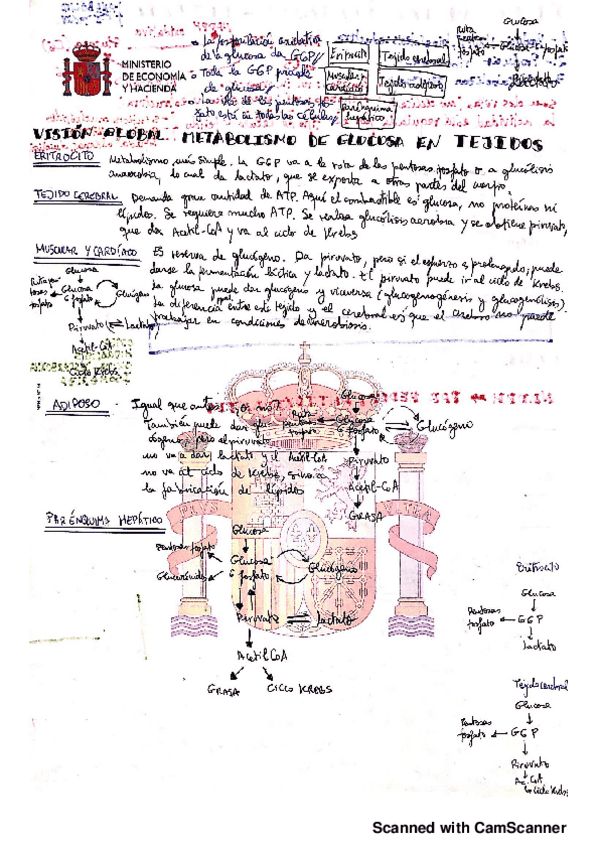 MINISTERIO
DE ECONOMÍA
Y HACIENDA
la fosforilación
de la glucosa da G6P
Toda la G6P procede
de glucosa
Eritrocito
Tejido cerebral
Muscular y
cardíaco
Tejido adiposo
Parénquima
hepático
Glucosa
Ruta
pentosas
fosfato
Glucosa-6-fosfato
VISIÓN GLOBAL METABOLISMO DE GLUCOSA EN TEJIDOS
ERITROCITO Metabolismo más simple. La G6P va a la ruta de las pentosas fosfato o a glucólisis
anaerobia, lo cual da lactato, que se exporta a otras partes del cuerpo.
TEJIDO CEREBRAL Demanda gran cantidad de ATP. Aquí el combustible es glucosa, no proteínas ni
lípidos. Se requiere mucho ATP. Se realiza glucólisis aerobia y se obtiene piruvato,
que da Acetil-CoA y va al ciclo de Krebs
MUSCULAR Y CARDÍACO Es reserva de glucógeno. Da piruvato, pero si el esfuerzo es prolongado, puede
darse la fermentación láctica y lactato. El piruvato puede ir al ciclo de Krebs.
la glucosa puede dar glucógeno y viceversa (glucogenogénesis y glucogenólisis).
la diferencia ppal entre este tejido y el cerebral es que el cerebro no puede
trabajar en condiciones de anaerobiosis.
Glucosa
Ruta pen-
tosas
fosfato
Glucosa
6 fosfato
Glucógeno
Piruvato
Lactato
Acetil-CoA
Ciclo Krebs
ADIPOSO
Igual que antes
También puede dar glu-
cógeno, pero el piruvato
no va a dar lactato y el Acetil-CoA
no va al ciclo de Krebs, sino a
la fabricación de lípidos
Glucosa
Ruta
pentosas
fosfato
Glucosa
6 fosfato
Glucógeno
Piruvato
Acetil-CoA
GRASA
PARÉNQUIMA HEPÁTICO
Glucosa
Pentosas fosfato
Glucosa
6 fosfato
Glucógeno
Piruvato
Lactato
Acetil CoA
GRASA
CICLO KREBS
PLUS
VLTRA
Eritrocito
Glucosa
Pentosas
fosfato
G6P
Lactato
Tejido cerebral
Glucosa
Pentosas
fosfato
G6P
Piruvato
Ac-CoA
Ciclo Krebs
Scanned with CamScanner